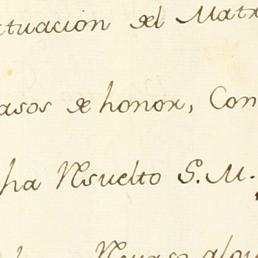 ctuacion del Matr
asos de honor, Con
ha Resuelto S. M.